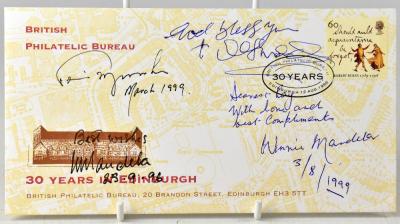 BRITISH
PHILATELIC BUREAU
God bless you
60
Should auld
acquaintance
be
forgot
ROBERT BURNS 1759-1796
30 YEARS
March 1999.
Dearest
With love and
best Compliments
Winnie Mandela
3/8/1999
Best wishes
Mandela
23.9.96
30 YEARS IN EDINBURGH
BRITISH PHILATELIC BUREAU, 20 BRANDON STREET, EDINBURGH EH3 5TT